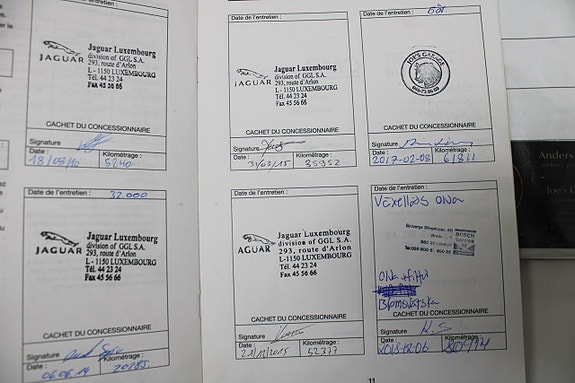 Jaguar Luxembourg
division of GGL S.A.
293, route d'Arlon
L - 1150 LUXEMBOURG
Tél. 44 23 24
Fax 45 56 66
JAGUAR
CACHET DU CONCESSIONNAIRE
Signature
Date :
Kilométrage :
18/08/10
5240
Date de l'entretien :
32.000
Jaguar Luxembourg
division of GGL S.A.
293, route d'Arlon
L -1150 LUXEMBOURG
Tél. 44 23 24
Fax 45 56 66
JAGUAR
CACHET DU CONCESSIONNAIRE
Signature
Date :
Kilométrage :
06.06.14
Date de l'entretien :
Jaguar Luxembourg
division of GGL S.A.
293, route d'Arlon
L - 1150 LUXEMBOURG
Tél. 44 23 24
Fax 45 56 66
JAGUAR
CACHET DU CONCESSIONNAIRE
Signature
Date :
Kilométrage :
31/03/15
35952
Date de l'entretien :
JOE'S GARAGE
CACHET DU CONCESSIONNAIRE
Signature
Date :
Kilométrage :
2017-02-08
61811
Date de l'entretien :
Jaguar Luxembourg
division of GGL S.A.
293, route d'Arlon
L -1150 LUXEMBOURG
Tél. 44 23 24
Fax 45 56 66
JAGUAR
CACHET DU CONCESSIONNAIRE
Signature
Date :
Kilométrage :
21/12/2015
52377
Date de l'entretien :
Växellåds olja
BOSCH
Service
Blomsbrtska
CACHET DU CONCESSIONNAIRE
Signature
K.S
Date :
Kilométrage :
2018-02-06
11
Anders
Joe's